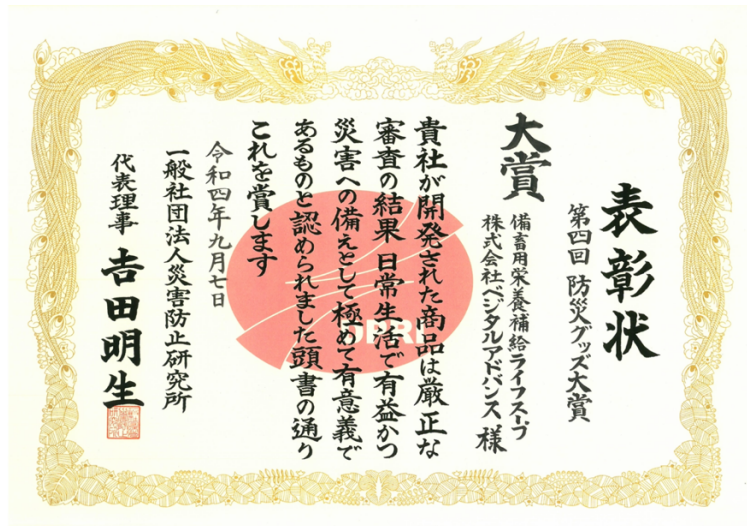 表彰状
第四回 防災グッズ大賞
大賞
備畜用栄養補給ライフスープ
株式会社ベジタルアドバンス 様
貴社が開発された商品は厳正な
審査の結果 日常生活で有益かつ
災害への備えとして極めて有意義で
あるものと認められました頭書の通り
これを賞します
令和四年九月七日
一般社団法人災害防止研究所
代表理事 吉田明生